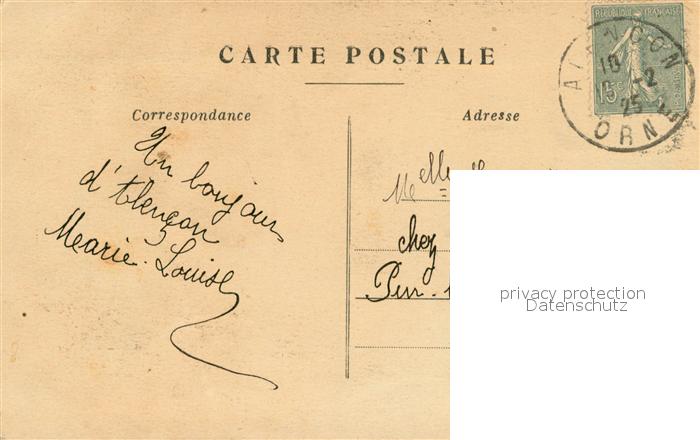 CARTE POSTALE
Correspondance
Adresse
RÉPUBLIQUE FRANÇAISE
15c
ALENÇON
10
-2
25
ORNE
Un bonjour
d'Alençon
Marie-Louise
Melle
chez
privacy protection
Datenschutz